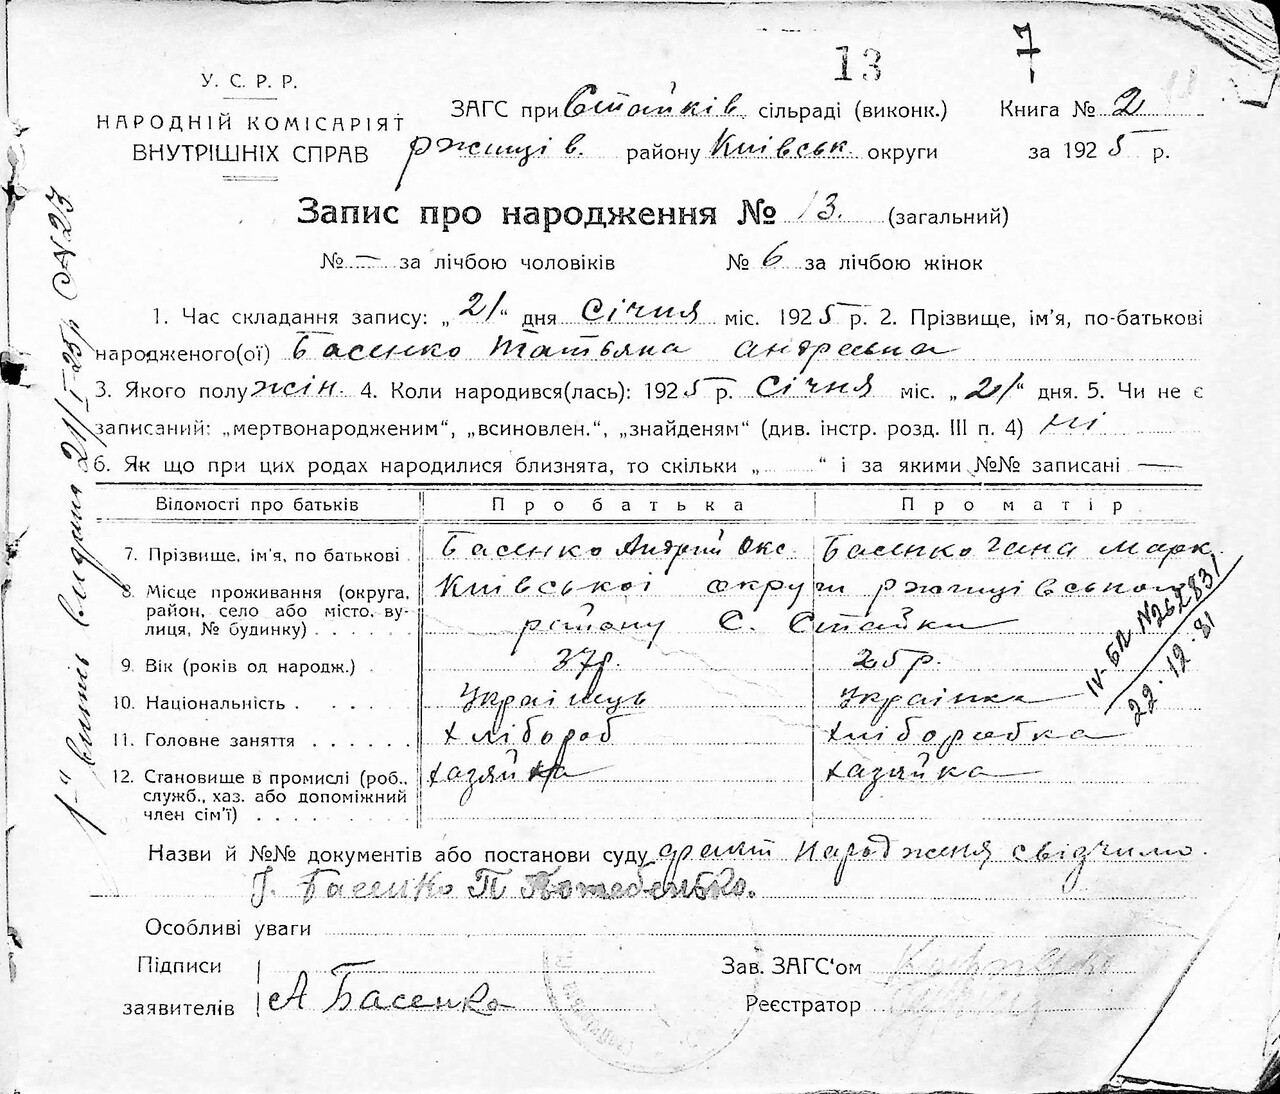 13
7
У. С. Р. Р.
НАРОДНІЙ КОМІСАРІЯТ
ВНУТРІШНІХ СПРАВ
ЗАГС при Стайків. сільраді (виконк.)
Ржищів. району Київськ. округи
Книга № 2
за 1925 р.
Запис про народження № 13. (загальний)
№ — за лічбою чоловіків № 6 за лічбою жінок
1. Час складання запису: „21“ дня Січня міс. 1925 р. 2. Прізвище, ім'я, по-батькові
народженого(ої) Басенко Татьяна Андреевна
3. Якого полу жін. 4. Коли народився(лась): 1925 р. Січня міс. „21“ дня. 5. Чи не є
записаний: „мертвонародженим“, „всиновлен.“, „знайденям“ (див. інстр. розд. III п. 4) ні
6. Як що при цих родах народилися близнята, то скільки „ “ і за якими №№ записані —
Відомості про батьків Про батька Про матір
7. Прізвище, ім'я, по батькові Басенко Андрій Окс. Басенко Гана Марк.
8. Місце проживання (округа, район, село або місто, вулиця, № будинку) Київської округи Ржищівського
району С. Стайки
9. Вік (років од народж.) 37р. 25р.
10. Національність Украінець Украінка
11. Головне заняття Хлібороб Хліборобка
12. Становище в промислі (роб., Хазяйка Хазяйка
служб., хаз. або допоміжний
член сім'ї)
Назви й №№ документів або постанови суду факт народженя свідчимо.
Басенко П
Особливі уваги
Підписи
заявителів А Басенко
Зав. ЗАГС'ом
Реєстратор
витяг видано 21/I-25р № 23
IV-БП №262831
22-12-81